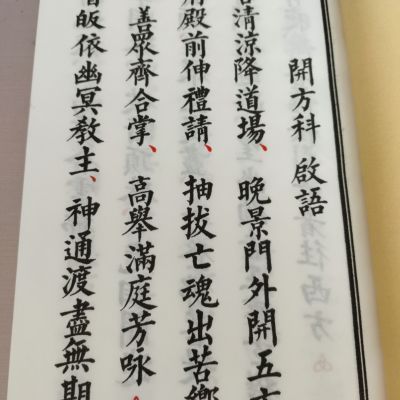 開方科 啟語
清涼降道場、晚景門外開五方
殿前伸禮請、抽拔亡魂出苦鄉
善眾齊合掌、高舉滿庭芳咏、
皈依幽冥教主、神通渡盡無期